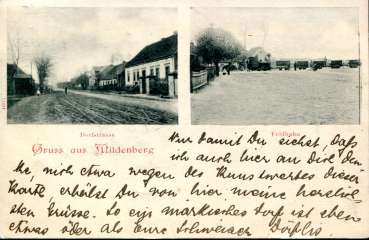 Dorfstrasse
Feldbahn
Gruss aus Mildenberg
Nur damit Du siehst, daß
ich auch hier an Dich den-
ke, nicht etwa wegen des Kunstwertes dieser
Karte, erhälst Du von hier meine herzlich-
sten Grüsse. So ein märkisches Dorf ist eben
etwas öder als eure Schweizer Dörflis.